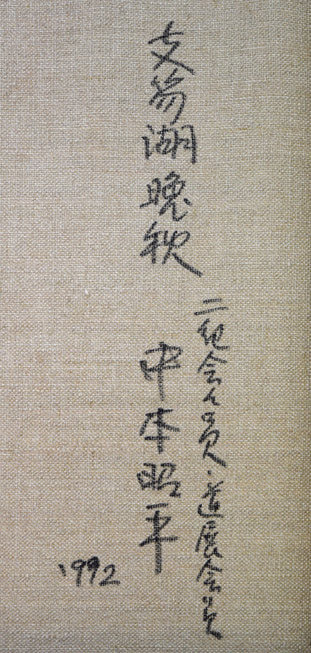 支笏湖晩秋
二紀会会員・道展会員
中本昭平
'992